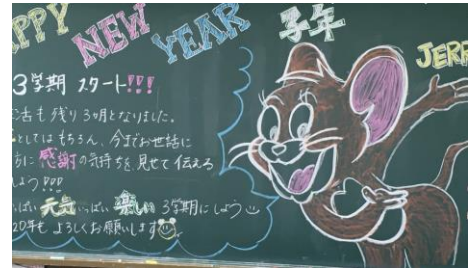 PPY NEW YEAR 子年
JERR
3学期 スタート!!!
活も残り3ヶ月となりました。
としてはもちろん、今までお世話に
方に感謝の気持ちを、見せて伝える
しょう!!!
ぱい 元気いっぱい 楽しい 3学期にしよう
20年も よろしくお願いします